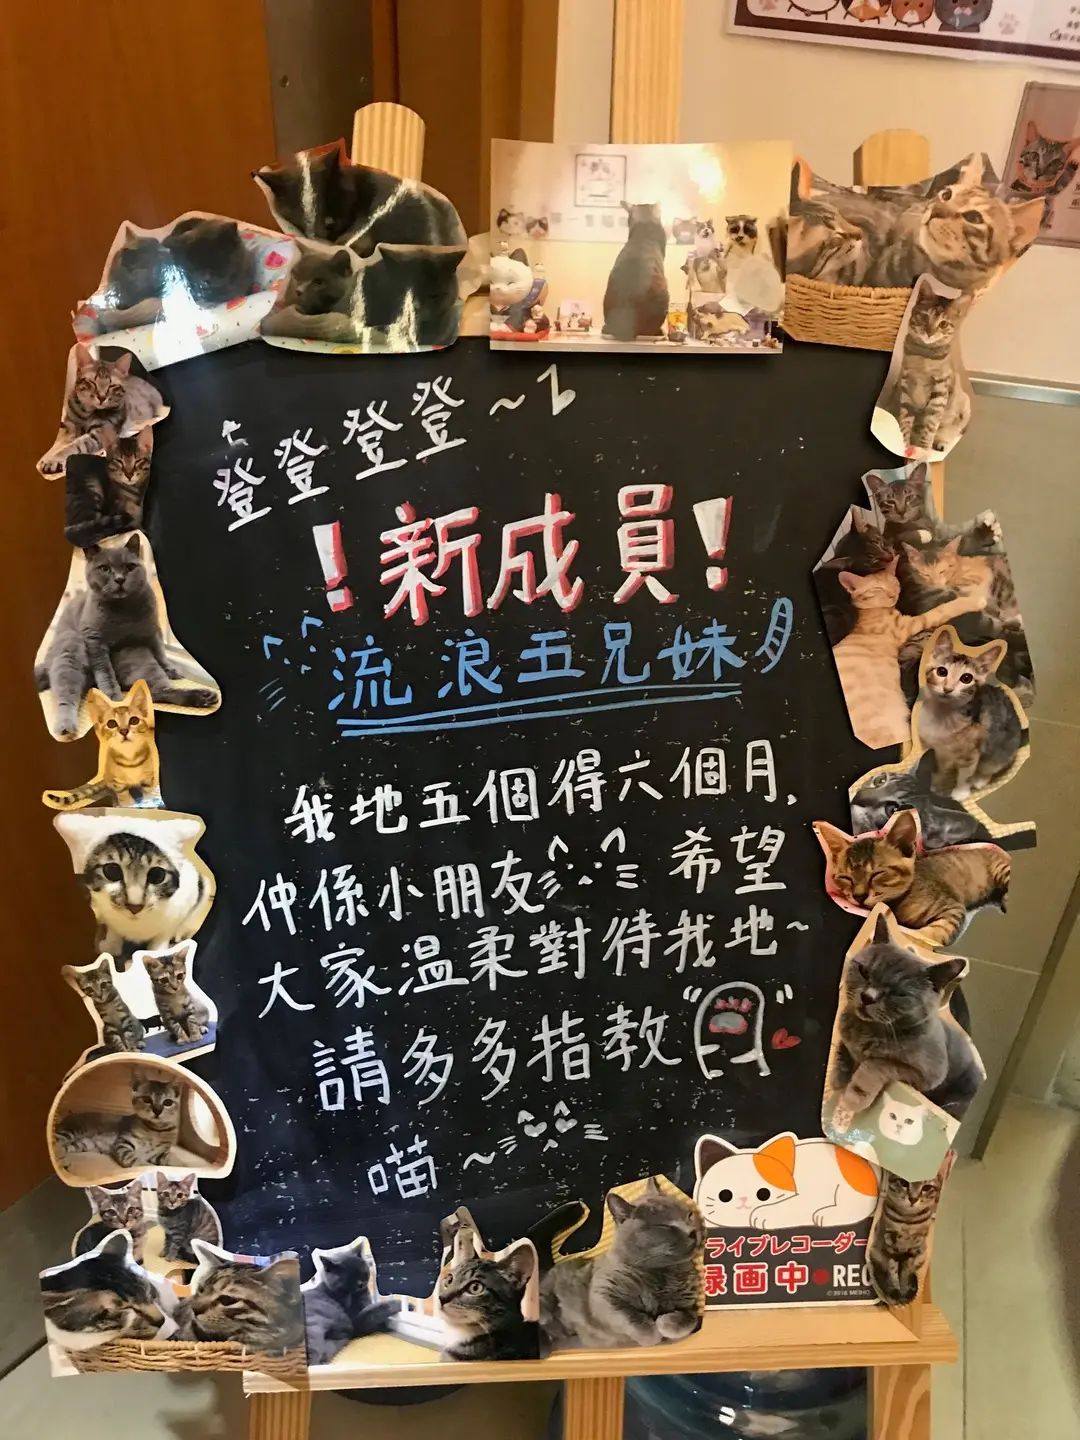 登登登登~
!新成員!
流浪五兄妹
我地五個得六個月,
仲係小朋友 希望
大家溫柔對待我地~
請多多指教" "
喵~
ライブレコーダー
録画中●REC
©2018 MEIHO